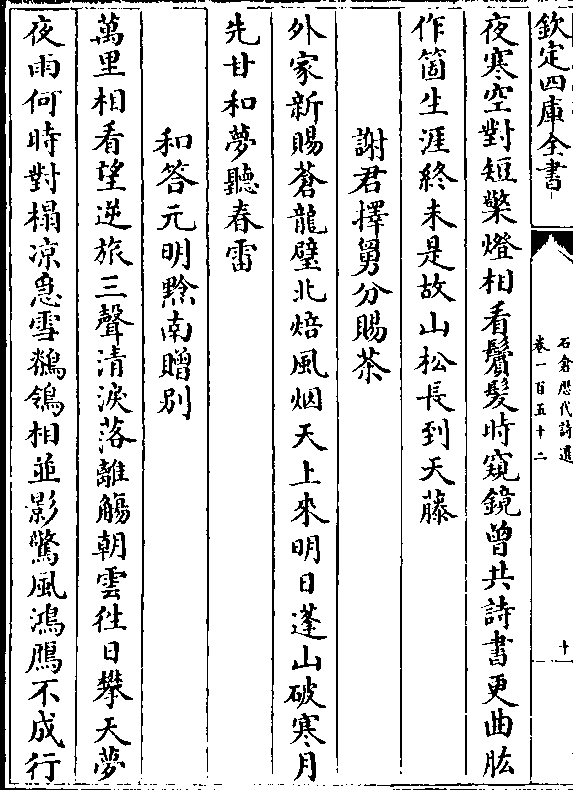 欽定四庫全書
石倉歷代詩選
卷一百五十二
十
夜寒空對短檠燈相看鬢髮時窺鏡曾共詩書更曲肱
作箇生涯終未是故山松長到天藤
謝君擇舅分賜茶
外家新賜蒼龍璧北焙風烟天上來明日蓬山破寒月
先甘和夢聽春雷
和答元明黔南贈別
萬里相看望逆旅三聲清淚落離觴朝雲徃日攀天夢
夜雨何時對榻凉急雪鶺鴒相並影驚風鴻鴈不成行